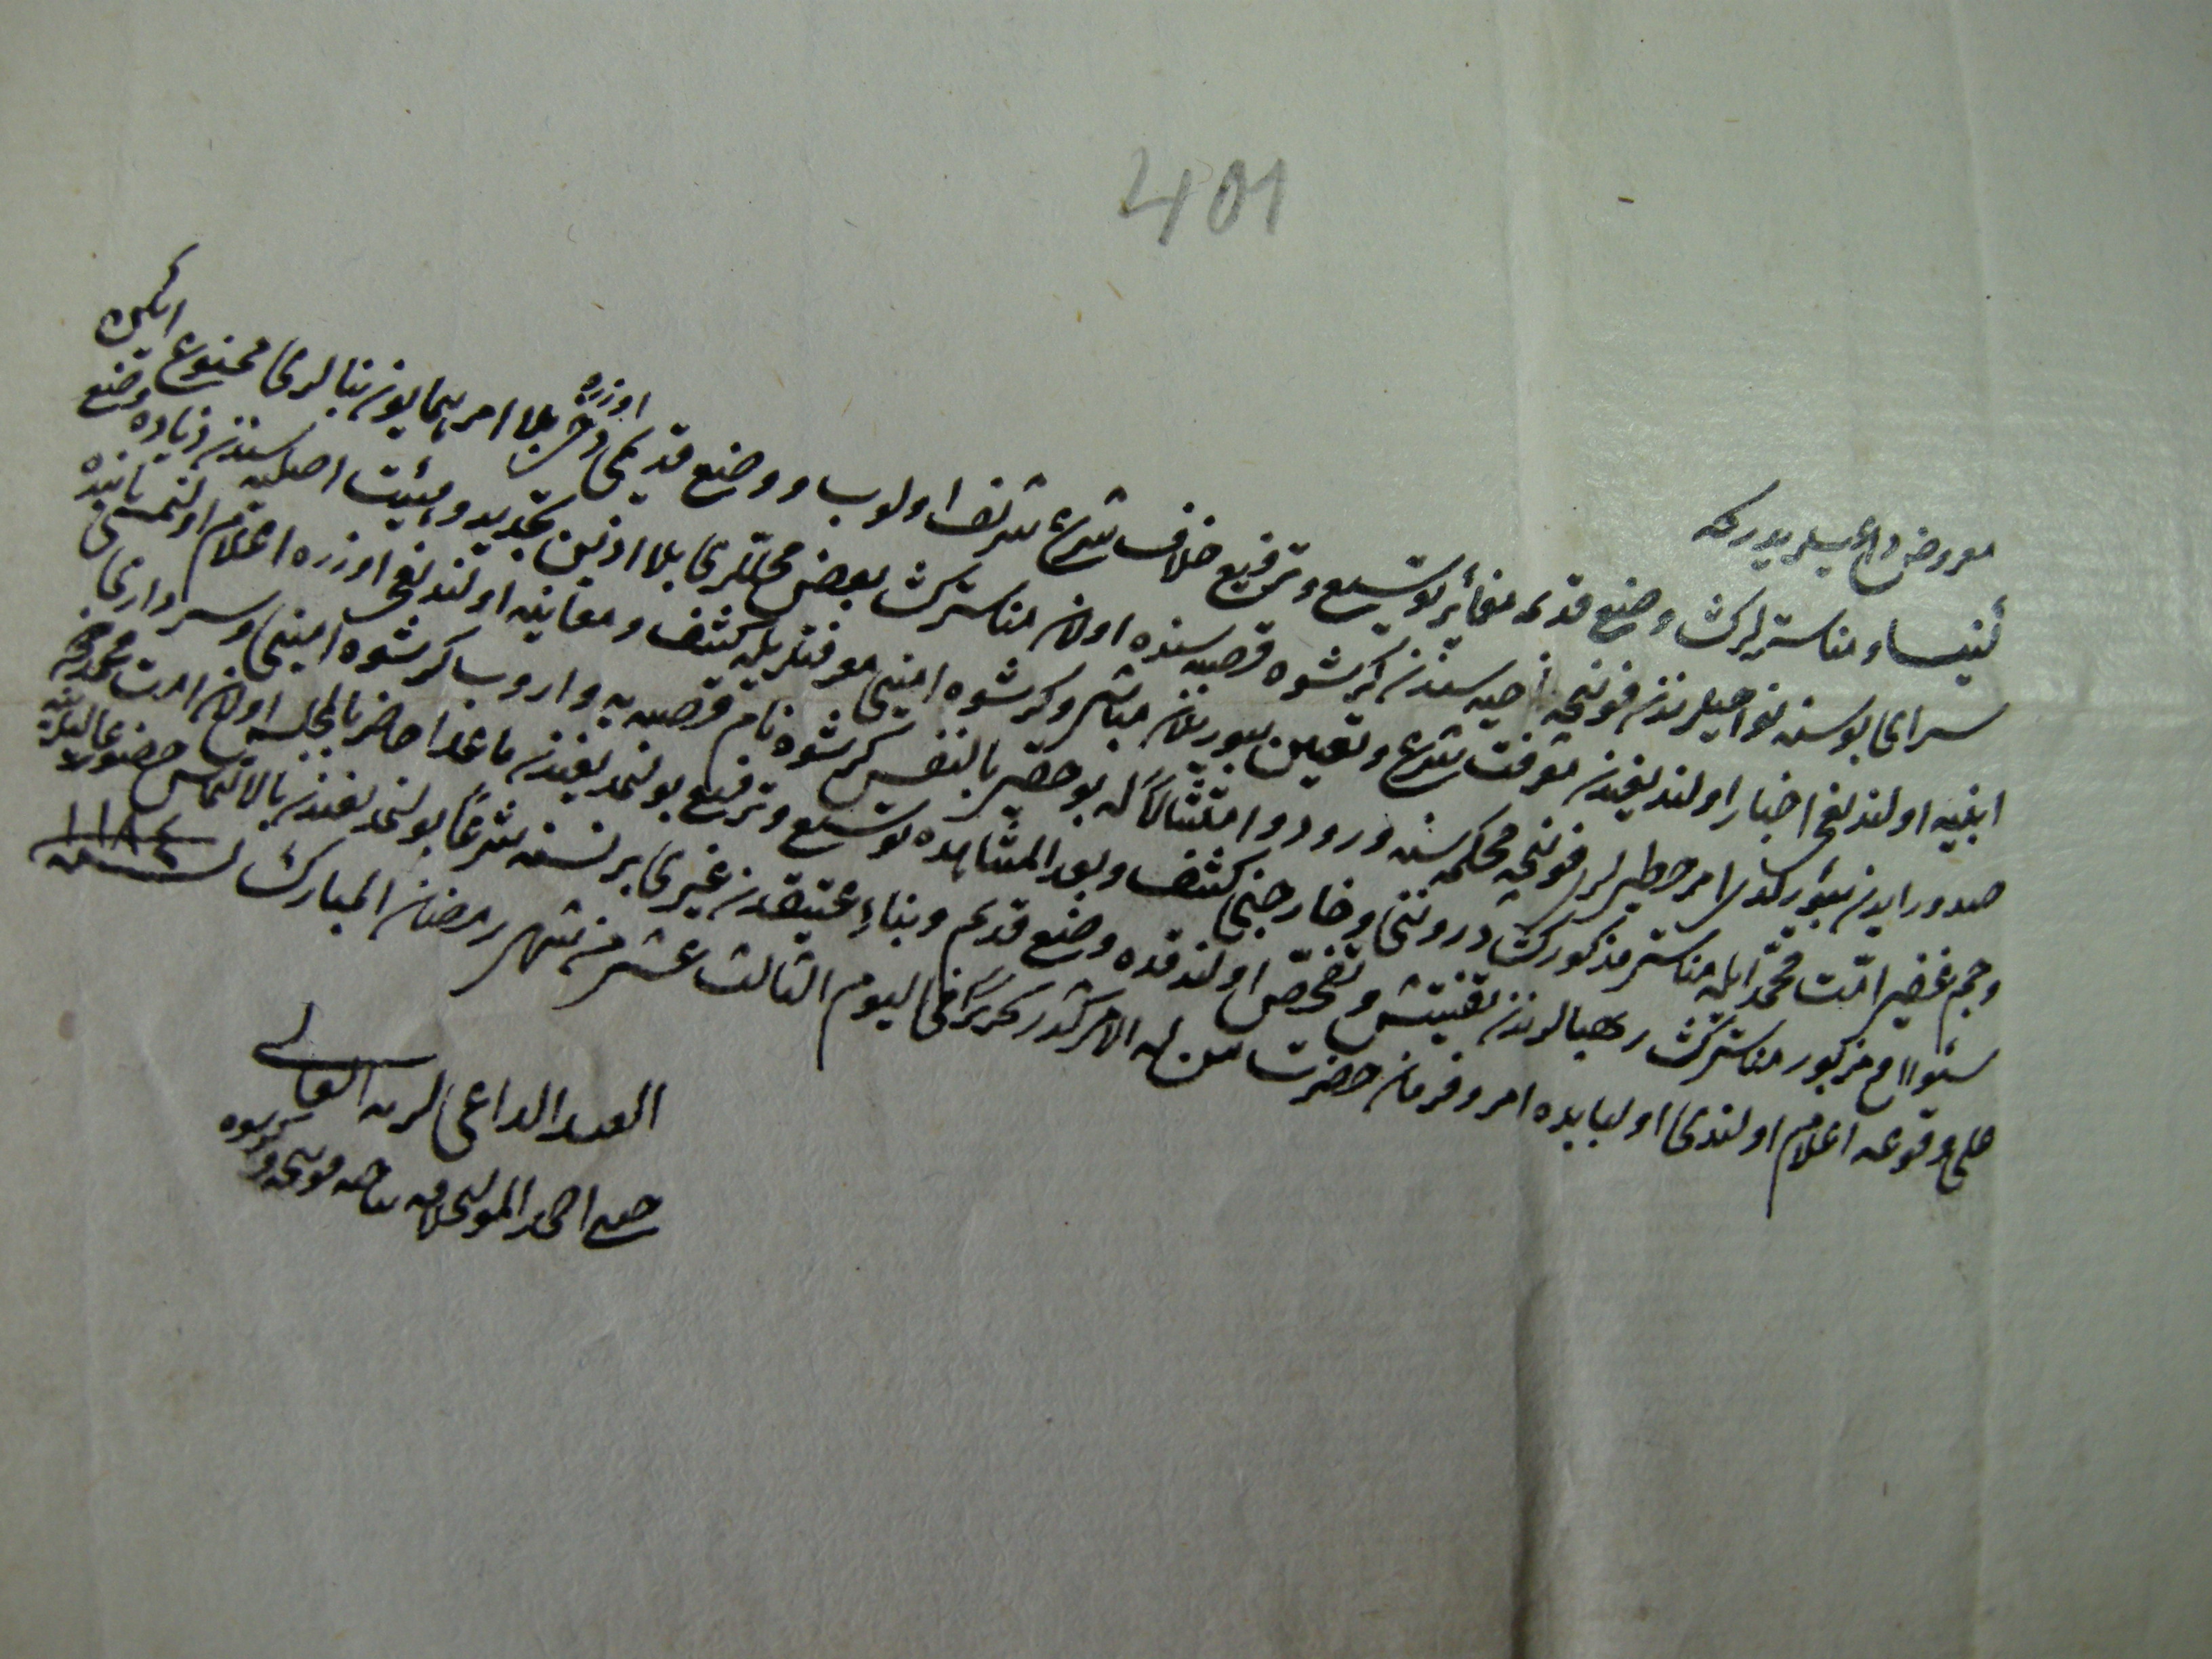 401
معروض داعیلریدر که
کنیسا و مناسترلرك وضع قدیمه مغایر توسیع و ترفیع خلاف شرع شریف اولوب و وضع قدیمی اوزره دخی بلا امر همایون بنالری ممنوع ایکن
سرای بوسنه نواحیلرندن فوینیچه ناحیه سندن کرشوه قصبه سنده اولان مناسترك بعض محللری بلا اذن تجدید و هیئت اصلیه سندن زیاده وضع
ابنیه اولندیغی اخبار اولندیغندن معرفت شرع و تعیین بیوریلان مباشر و کرشوه امینی معرفتلریله کشف و معاینه اولندیغی اوزره اعلام اولنمق بابنده
صدور ایدن بیورلدی امر خطیرلری فوینیچه محکمه سنه ورود و امتثالا له بو حقیر بالنفس کرشوه نام قصبه یه واروب کرشوه امینی و سرداری
و جم غفیر امت محمد ایله مناستر مذکورك درونی و خارجنی کشف و بعد المشاهده توسیع و ترفیع بولنمدیغندن ماعدا حاضر بالمجلس اولان امت محمد
سئوال و مزبور مناسترك رهبانلرندن تفتیش و تفحص اولندقده وضع قدیم و بناء عتیقدن غیری بر نسنه شرعا بولنمدیغندن بالالتماس حضور
علی وقوعه اعلام اولندی اولبابده امر و فرمان حضرت من له الامرکدر تحریرا فی الیوم الثالث عشر من شهر رمضان المبارك لسنه ١١٨٤
العبد الداعی
احمد المولی بناحیه فوینیچه و کرشوه